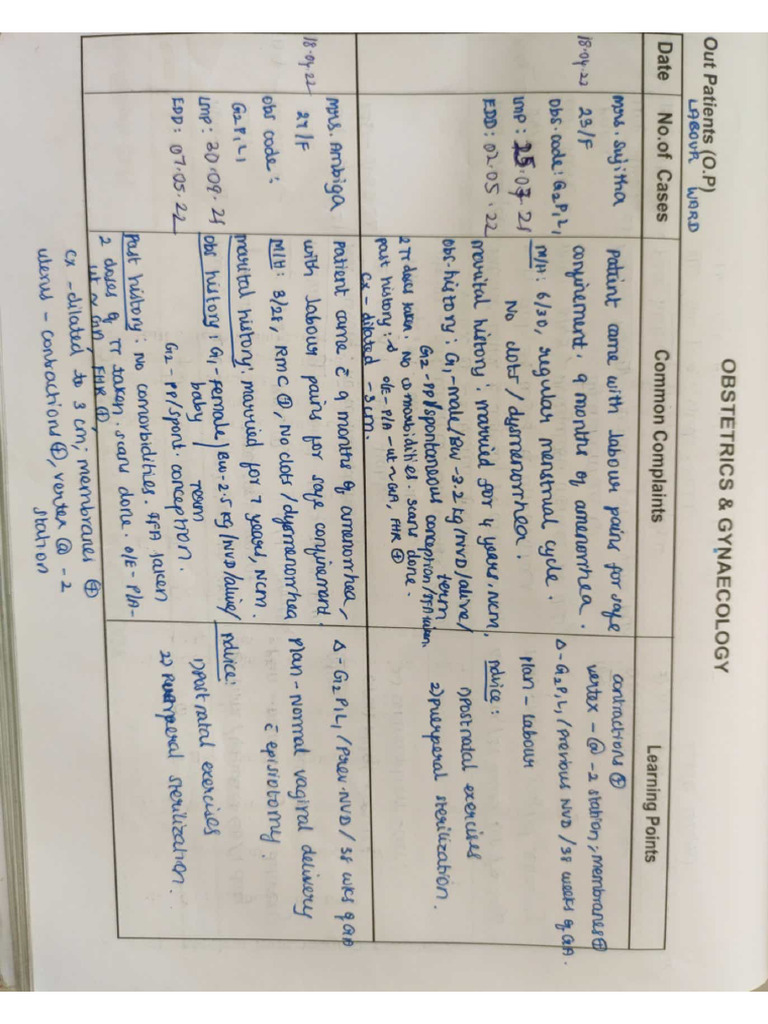 OBSTETRICS & GYNAECOLOGY
Out Patients (O.P)
LABOUR WORD
Date
No.of Cases
Common Complaints
Learning Points
18.04.22
Mrs. Sujitha
23/F
Obs.code: G2P1L1
LMP: 25.07.21
EDD: 02.05.22
Patient came with labour pains for safe
confinement. 9 months of amenorrhea.
M/H: 6/30, regular menstrual cycle.
No clots/dysmenorrhea.
Marital history: married for 4 years. NCM,
Obs.history: G1-male/BW-3.2kg/NVD/alive/
term
G2-PP/spontaneous conception/IFA taken,
2 TT doses taken. No comorbidities. scans done.
past history: o/E-P/A-ut~GA, FHR ⊕
Cx-dilated-3cm.
contractions ⊕
vertex-@ -2 station; membranes ⊕
Δ-G2P1L1/Previous NVD/38 weeks of GA.
Plan-labour
Advice:
1) Postnatal exercises
2) Puerperal sterilization.
18.04.22
Mrs. Ambiga
27/F
Obs code:
G2P1L1
LMP: 30.09.21
EDD: 07.05.22
Patient came c̄ 9 months of amenorrhea,
with labour pains for safe confinement.
M/H: 3/28, RMC ⊕, No clots/dysmenorrhea
Marital history: married for 7 years, NCM.
Obs history: G1-female/BW-2.5kg/NVD/alive/
baby term
G2-PP/spont. conception.
Past history: No comorbidities. IFA taken
2 doses of TT taken. scans done. o/E-P/A-
ut~GA, FHR ⊕
cx-dilated to 3 cm; membranes ⊕
uterus-contractions ⊕, vertex @ -2
station
Δ-G2P1L1/Prev.NVD/38 wks of GA
Plan-Normal vaginal delivery
c̄ episiotomy.
Advice:
1) Postnatal exercises
2) Puerperal sterilization.